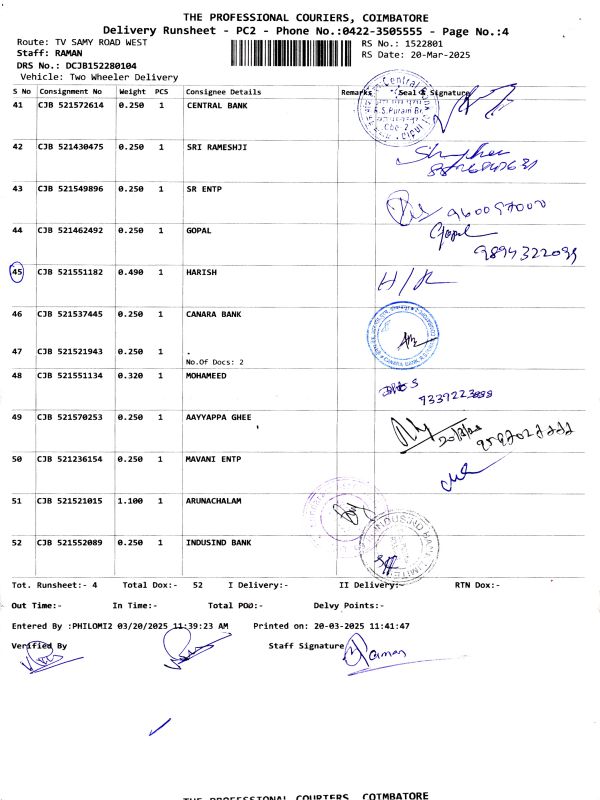 THE PROFESSIONAL COURIERS, COIMBATORE
Delivery Runsheet - PC2 - Phone No.:0422-3505555 - Page No.:4
Route: TV SAMY ROAD WEST
RS No.: 1522801
Staff: RAMAN
RS Date: 20-Mar-2025
DRS No.: DCJB152280104
Vehicle: Two Wheeler Delivery
S No Consignment No Weight PCS Consignee Details Remarks Seal & Signature
41 CJB 521572614 0.250 1 CENTRAL BANK
Central Bank
R.S.Puram Br.
Cbe-2
42 CJB 521430475 0.250 1 SRI RAMESHJI
43 CJB 521549896 0.250 1 SR ENTP
44 CJB 521462492 0.250 1 GOPAL
Gopal
9894322099
45 CJB 521551182 0.490 1 HARISH
H/R
46 CJB 521537445 0.250 1 CANARA BANK
CANARA BANK
47 CJB 521521943 0.250 1 .
No.Of Docs: 2
48 CJB 521551134 0.320 1 MOHAMEED
49 CJB 521570253 0.250 1 AAYYAPPA GHEE
50 CJB 521236154 0.250 1 MAVANI ENTP
51 CJB 521521015 1.100 1 ARUNACHALAM
52 CJB 521552089 0.250 1 INDUSIND BANK
INDUSIND BANK LIMITED
Tot. Runsheet:- 4 Total Dox:- 52 I Delivery:- II Delivery:- RTN Dox:-
Out Time:- In Time:- Total POD:- Delvy Points:-
Entered By :PHILOMI2 03/20/2025 11:39:23 AM Printed on: 20-03-2025 11:41:47
Verified By Staff Signature
Raman
THE PROFESSIONAL COURIERS, COIMBATORE